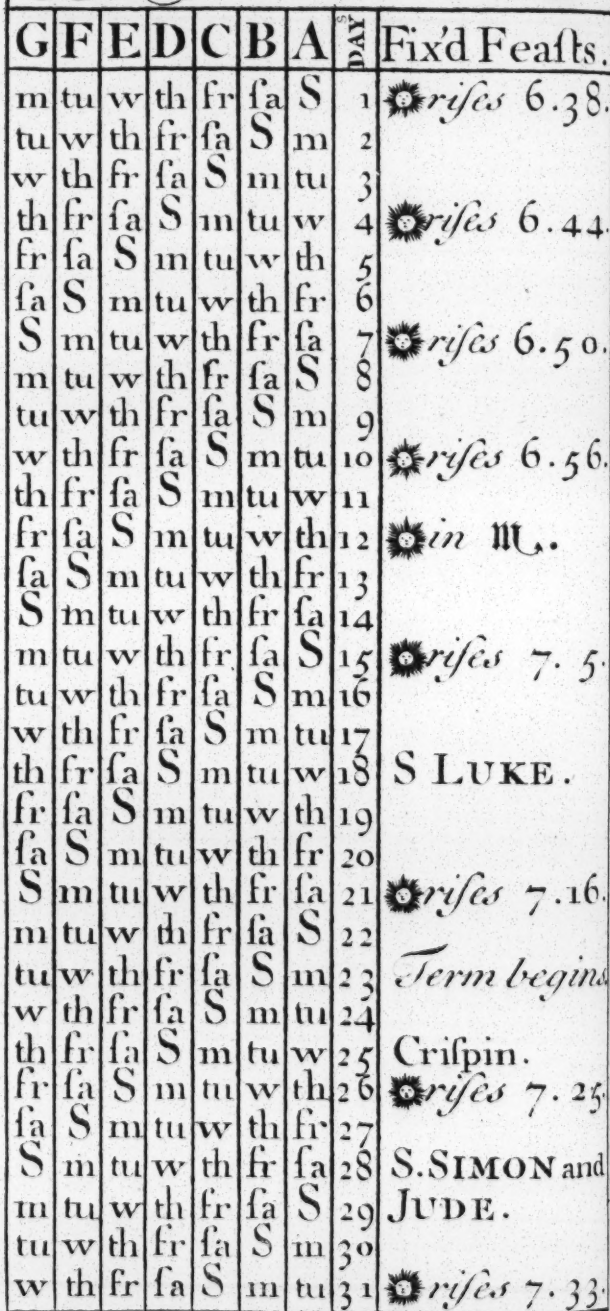 G F E D C B A DAYS Fix'd Feaſts.
m tu w th fr ſa S 1 riſes 6.38.
tu w th fr ſa S m 2
w th fr ſa S m tu 3
th fr ſa S m tu w 4 riſes 6.44.
fr ſa S m tu w th 5
ſa S m tu w th fr 6
S m tu w th fr ſa 7 riſes 6.50.
m tu w th fr ſa S 8
tu w th fr ſa S m 9
w th fr ſa S m tu 10 riſes 6.56.
th fr ſa S m tu w 11
fr ſa S m tu w th 12 in ♏.
ſa S m tu w th fr 13
S m tu w th fr ſa 14
m tu w th fr ſa S 15 riſes 7. 5.
tu w th fr ſa S m 16
w th fr ſa S m tu 17
th fr ſa S m tu w 18 S LUKE.
fr ſa S m tu w th 19
ſa S m tu w th fr 20
S m tu w th fr ſa 21 riſes 7.16.
m tu w th fr ſa S 22
tu w th fr ſa S m 23 Term begins
w th fr ſa S m tu 24
th fr ſa S m tu w 25 Criſpin.
fr ſa S m tu w th 26 riſes 7.25.
ſa S m tu w th fr 27
S m tu w th fr ſa 28 S. SIMON and
m tu w th fr ſa S 29 JUDE.
tu w th fr ſa S m 30
w th fr ſa S m tu 31 riſes 7.33.